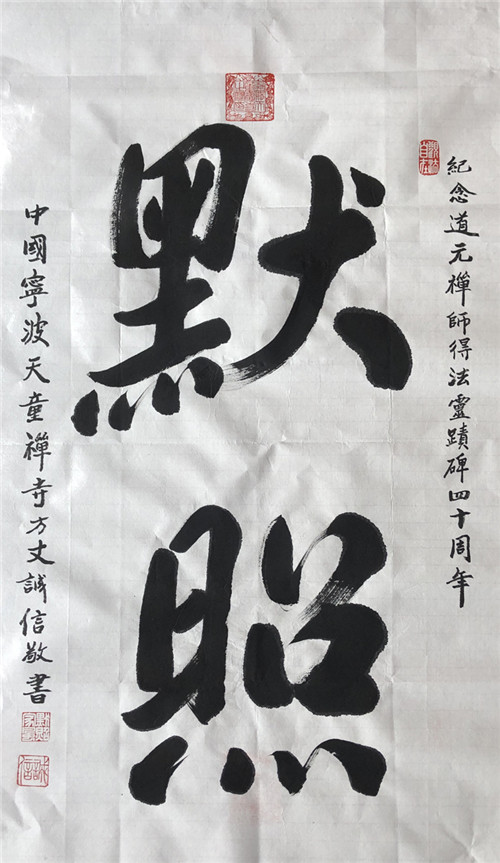 紀念道元禪師得法靈蹟碑四十周年
默照
中國寧波天童禪寺方丈誠信敬書